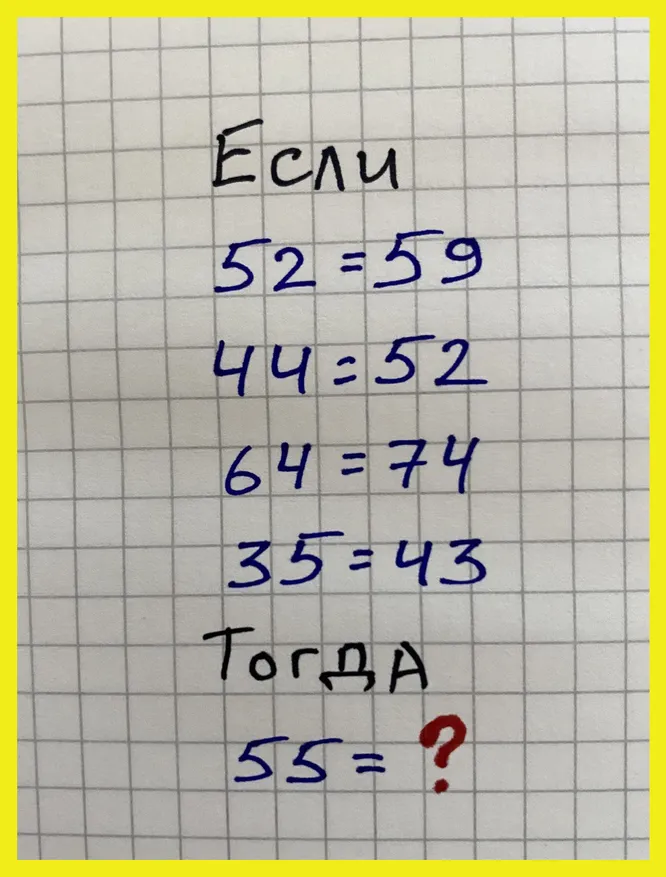 Если
52=59
44=52
64=74
35=43
Тогда
55=?